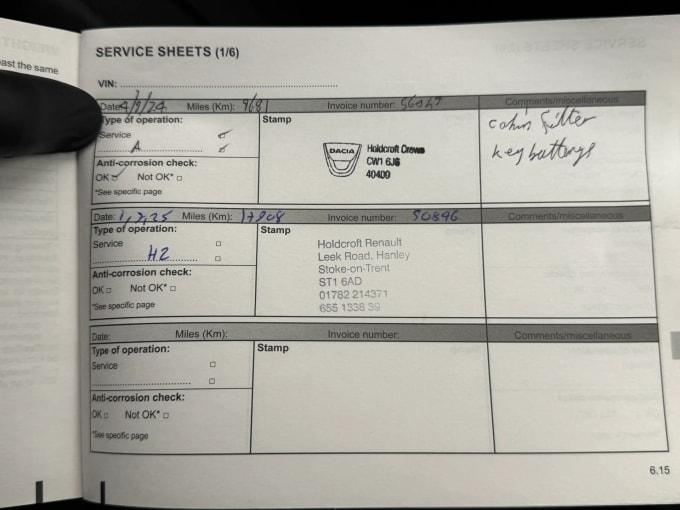 past the same
SERVICE SHEETS (1/6)
VIN:
Date: 4/9/24 Miles (Km): 9681 Invoice number:
Comments/miscellaneous
Type of operation:
Service
A
Anti-corrosion check:
OK Not OK*
*See specific page
Stamp
DACIA
Holdcroft Crewe
CW1 6JS
40400
Filter
key batterys
Date: 1,7,25 Miles (Km): 17908 Invoice number: 50896
Comments/miscellaneous
Type of operation:
Service
H2
Anti-corrosion check:
OK Not OK*
*See specific page
Stamp
Holdcroft Renault
Leek Road, Hanley
Stoke-on-Trent
ST1 6AD
01782 214371
Date: Miles (Km): Invoice number:
Comments/miscellaneous
Type of operation:
Service
Anti-corrosion check:
OK Not OK*
*See specific page
Stamp
6.15